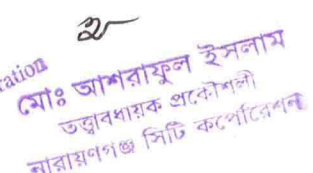 ration
মোঃ আশরাফুল ইসলাম
তত্ত্বাবধায়ক প্রকৌশলী
নারায়ণগঞ্জ সিটি কর্পোরেশন